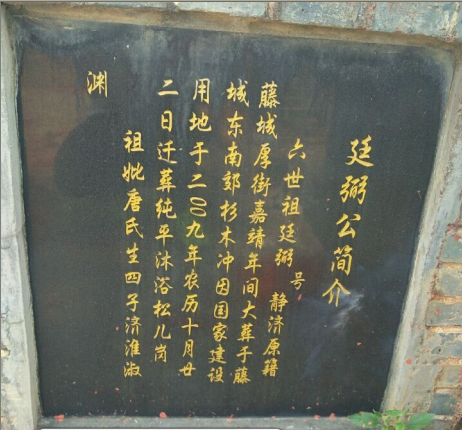 廷弼公简介
六世祖廷弼号静济原籍
藤城厚街嘉靖年间大葬于藤
城东南郊杉木冲因国家建设
用地于二00九年农历十月廿
二日迁葬纯平沐浴松儿岗
祖妣唐氏生四子济淮淑
渊